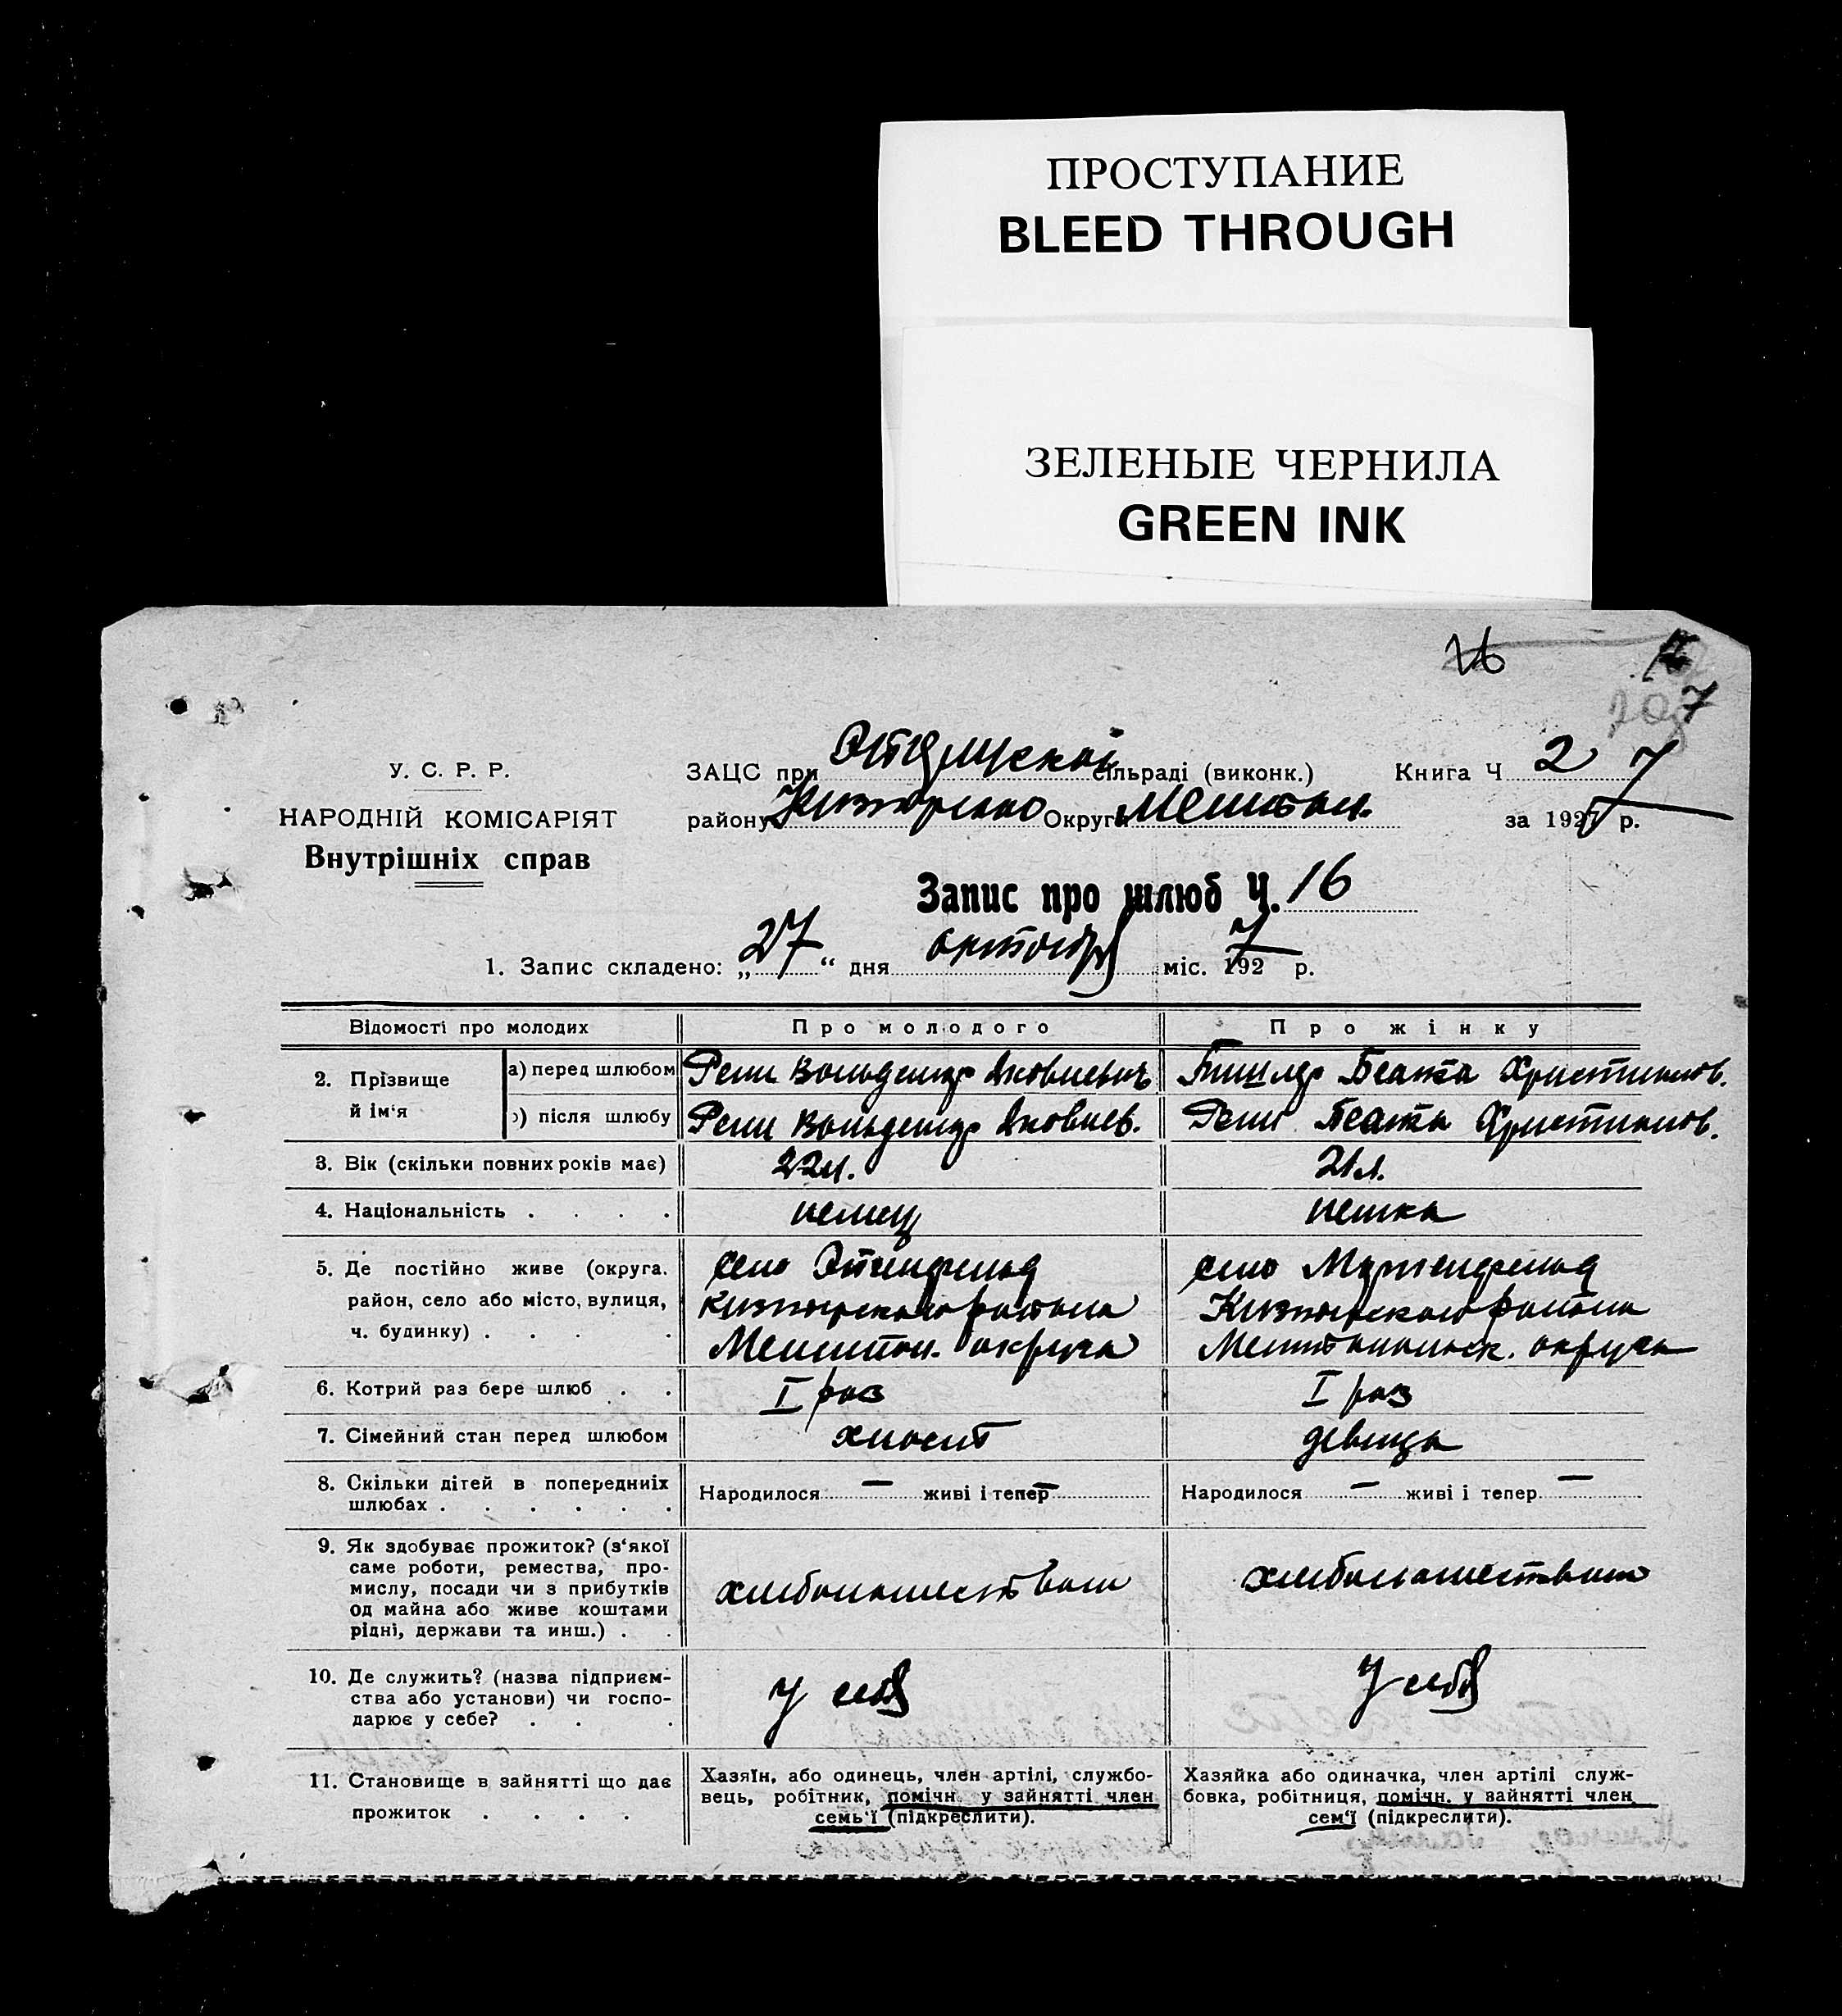 ПРОСТУПАНИЕ
BLEED THROUGH
ЗЕЛЕНЫЕ ЧЕРНИЛА
GREEN INK
16
7
У. С. Р. Р.
НАРОДНІЙ КОМІСАРІЯТ
Внутрішніх справ
ЗАЦС при сільраді (виконк.) Книга Ч 2 7
району Округ за 1927 р.
Запис про шлюб Ч. 16
1. Запис складено: „27“ дня октября міс. 1927 р.
Відомості про молодих Про молодого Про жінку
2. Прізвище й ім‘я
а) перед шлюбом Вольдемар Яковлевич Беата Христианов.
після шлюбу Вольдемар Яковлев. Беата Христианов.
3. Вік (скільки повних років має) 22 л. 21 л.
4. Національність . . . . немец немка
5. Де постійно живе (округа, село село
район, село або місто, вулиця, района района
ч. будинку) . . . . округа округа
6. Котрий раз бере шлюб . . I раз I раз
7. Сімейний стан перед шлюбом холост девица
8. Скільки дітей в попередніх Народилося — живі і тепер — Народилося — живі і тепер —
шлюбах . . . . . .
9. Як здобуває прожиток? (з‘якої
саме роботи, ремества, про-
мислу, посади чи з прибутків хлебопашеством хлебопашеством
од майна або живе коштами
рідні, держави та инш.) . .
10. Де служить? (назва підприєм-
ства або установи) чи госпо- у себя у себя
дарює у себе? . . .
11. Становище в зайнятті що дає
прожиток . . . .
Хазяїн, або одинець, член артілі, службо-
вець, робітник, помічн. у зайнятті член
семь‘ї (підкреслити).
Хазяйка або одиначка, член артілі служ-
бовка, робітниця, помічн. у зайнятті член
сем‘ї (підкреслити).